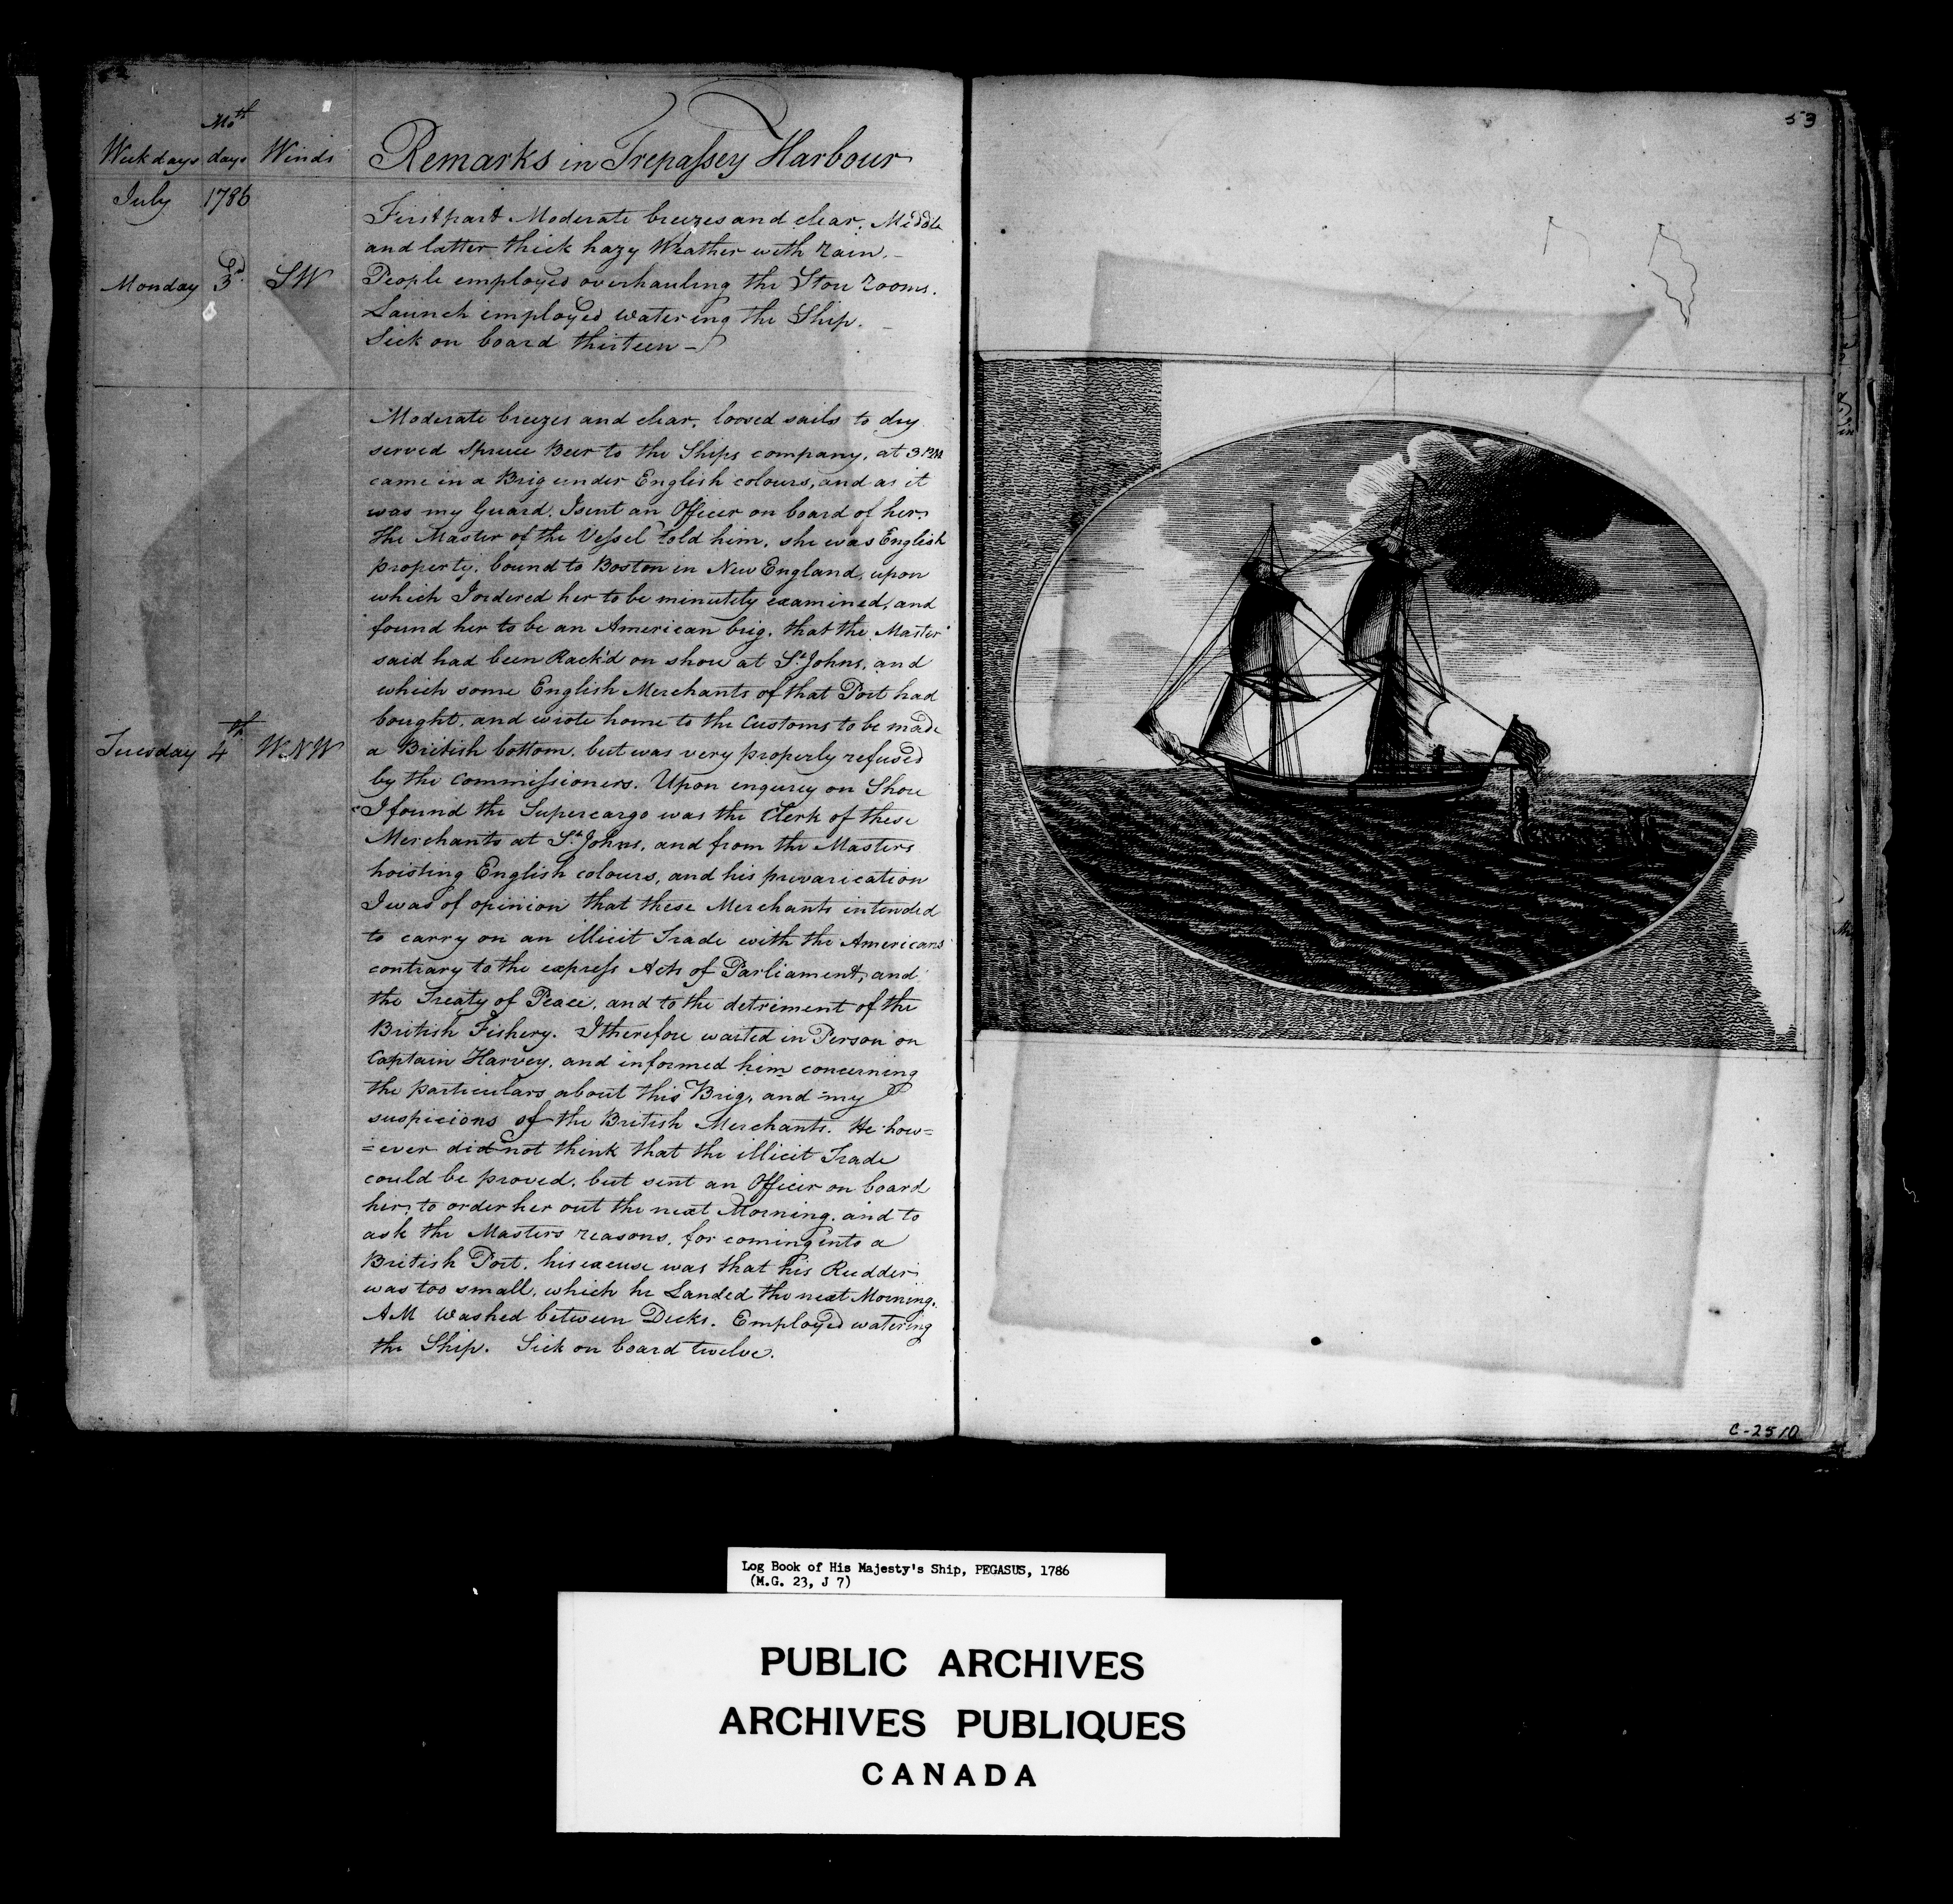 52
Mo.th
Weekdays days Winds Remarks in Trepassey Harbour
July 1786
First part Moderate breezes and clear, Middle
and latter thick hazy Weather with rain. –
Monday 3d. SW People employed overhauling the Store rooms.
Launch employed watering the Ship. –
Sick on board thirteen –
Moderate breezes and clear, loosed sails to dry
served Spruce Beer to the Ships company, at 3 PM
came in a Brig under English colours, and as it
was my Guard, I sent an Officer on board of her.
the Master of the Vessel told him, she was English
property, bound to Boston in New England, upon
which I ordered her to be minutely examined, and
found her to be an American brig, that the Master
said had been Rack'd on shore at St. Johns, and
which some English Merchants of that Port had
bought, and wrote home to the Customs to be made
Tuesday 4th WNW a British bottom, but was very properly refused
by the Commissioners. Upon enquirey on Shore
I found the Supercargo was the Clerk of these
Merchants at St. Johns, and from the Masters
hoisting English colours, and his prevarication
I was of opinion that these Merchants intended
to carry on an illicit Trade with the Americans
contrary to the express Acts of Parliament, and
the Treaty of Peace, and to the detriment of the
British Fishery. I therefore waited in Person on
Captain Harvey, and informed him concerning
the particulars about this Brig, and my
suspicions of the British Merchants. He how=
=ever did not think that the illicit Trade
could be proved, but sent an Officer on board
her, to order her out the next Morning, and to
ask the Masters reasons, for coming into a
British Port, his excuse was that his Rudder
was too small, which he Landed the next Morning.
AM Washed between Decks. Employed watering
the Ship. Sick on board twelve.
53
C-2510
Log Book of His Majesty's Ship, PEGASUS, 1786
(M.G. 23, J 7)
PUBLIC ARCHIVES
ARCHIVES PUBLIQUES
CANADA